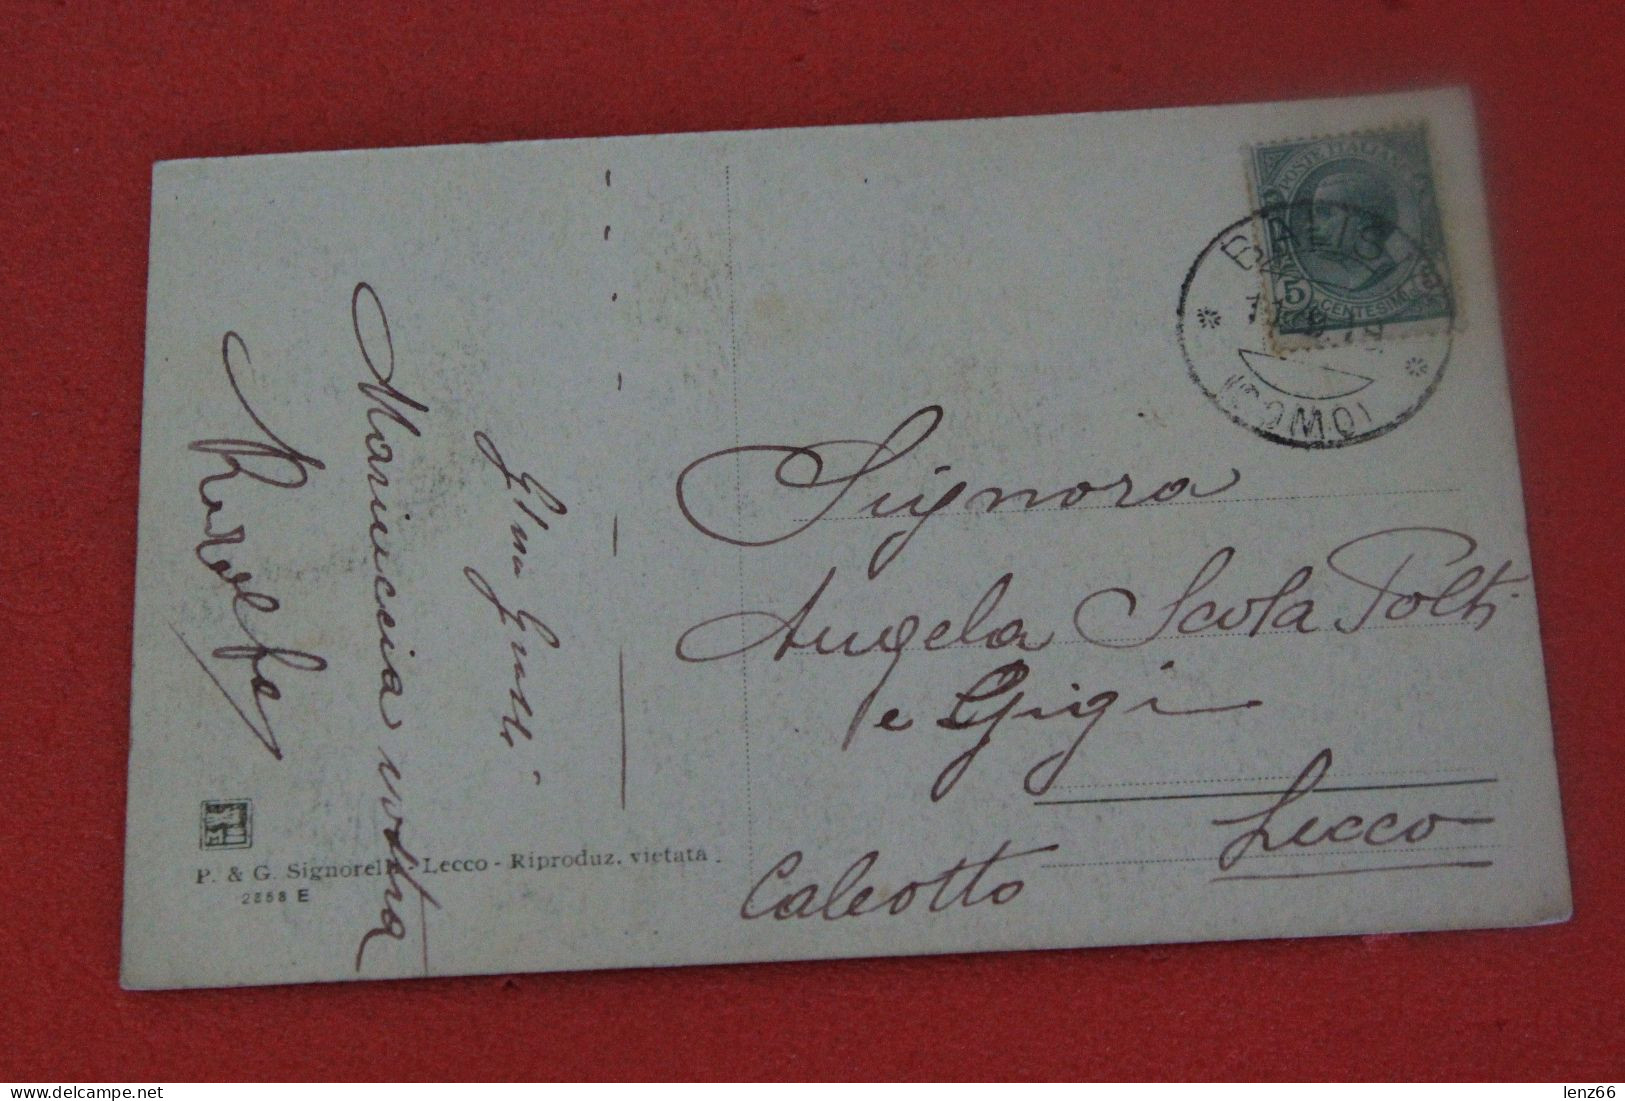 POSTE ITALIANE
5
CENTESIMI
BALISIO
(COMO)
Signora
Angela Scola Polti
e Gigi
Lecco
Caleotto
Mariuccia vostra
Rodolfo
P. & G. Signorelli - Lecco - Riproduz. vietata
2858 E
delcampe.net
lenz66